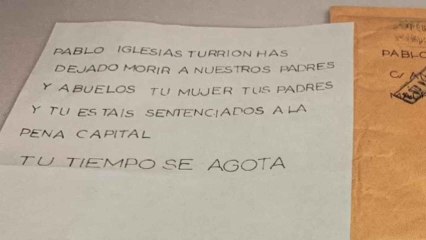 PABLO IGLESIAS TURRION HAS
DEJADO MORIR A NUESTROS PADRES
Y ABUELOS TU MUJER TUS PADRES
Y TU ESTAIS SENTENCIADOS A LA
PENA CAPITAL
TU TIEMPO SE AGOTA
PABLO
C/